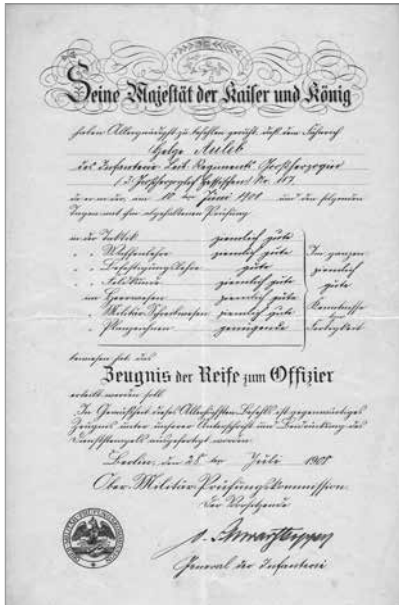 Seine Majestät der Kaiser und König
haben Allergnädigst zu befehlen geruht, daß dem Fähnrich
Helge Auleb
des Infanterie Leib Regiments Großherzogin
(3. Großherzoglich Hessischen) Nr. 117
in er am 10 ten Juni 1908 und den folgenden
Tagen mit ihm abgehaltenen Prüfung
in der Taktik ziemlich gute
" " Waffenlehre ziemlich gute
" " Befestigungslehre gute
" " Feldkunde ziemlich gute
im Heerwesen ziemlich gute
" Militär-Schreibwesen ziemlich gute
" Planzeichnen genügende
Im ganzen
ziemlich
gute
Kenntnisse
Fertigkeit
bewiesen hat, das
Zeugnis der Reife zum Offizier
erteilt werden soll.
In Gemäßheit dieses Allerhöchsten Befehls ist gegenwärtiges
Zeugnis unter unserer Unterschrift und Beidrückung des
Dienststempels ausgefertigt worden.
Berlin, den 28 ten Juli 1908
Ober-Militär-Prüfungskommission.
Der Vorsitzende
General der Infanterie